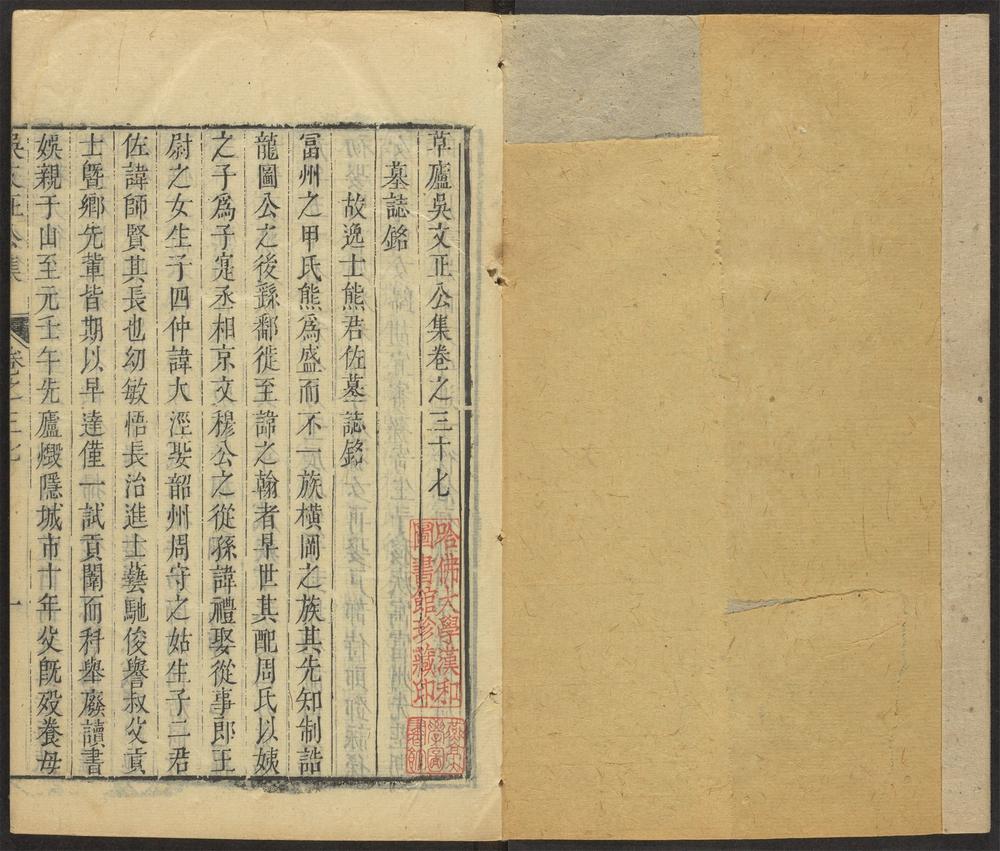 草廬吳文正公集卷之三十七
墓誌銘
故逸士熊君佐墓誌銘
富州之甲氏熊為盛而不一族橫岡之族其先知制誥
龍圖公之後繇鄱徙至諱之翰者是世其配周氏以姨
之子為子寔丞相京文穆公之從孫諱禮娶從事郎王
尉之女生子四仲諱大涇娶韶州周守之姑生子二君
佐諱師賢其長也幼敏悟長治進士藝馳俊譽叔父貢
士暨鄉先輩皆期以早達僅一試貢闈而科舉廢讀書
娛親于山至元壬午先廬燬隱城市十年父旣歿養母
吳文正公集
卷之三七
一
哈佛大學漢和
圖書館珍藏印